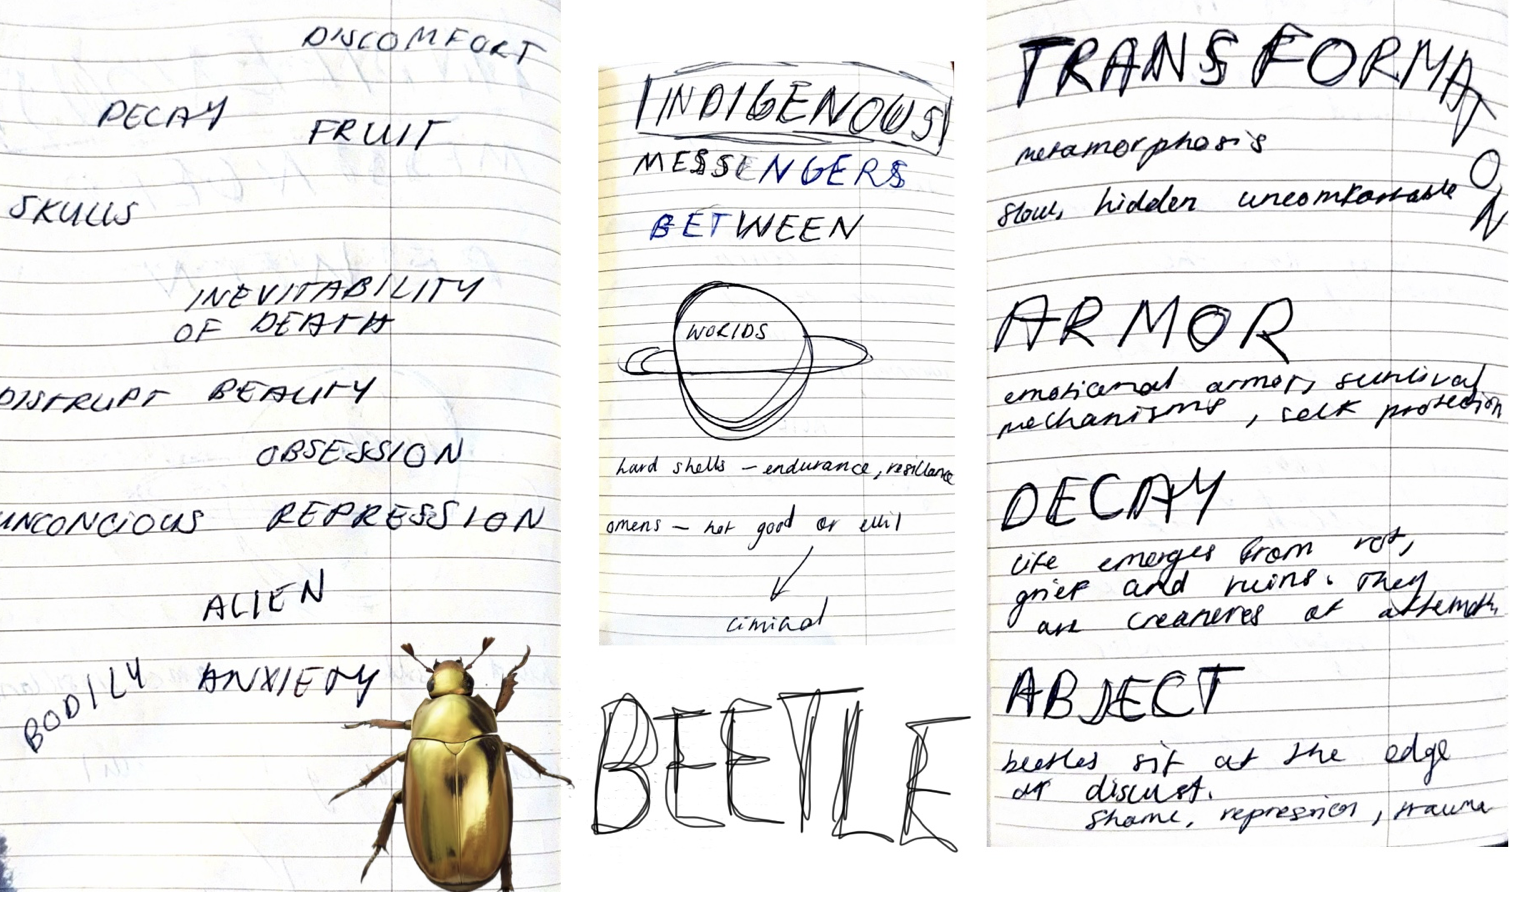 DISCOMFORT
DECAY FRUIT
SKULLS
INEVITABILITY
OF DEATH
DISTRUPT BEAUTY
OBSESSION
UNCONCIOUS REPRESSION
ALIEN
BODILY ANXIETY
INDIGENOUS
MESSENGERS
BETWEEN
WORLDS
hard shells – endurance, resillance
omens – not good or evil
liminal
BEETLE
TRANSFORMATION
metamorphosis
slow, hidden uncomfortable
ARMOR
emotional armor, survival
mechanisms, self protection
DECAY
life emerges from rot,
grief and ruins. They
are creatures of aftermath
ABJECT
beetles sit at the edge
of disgust.
shame, repression, trauma